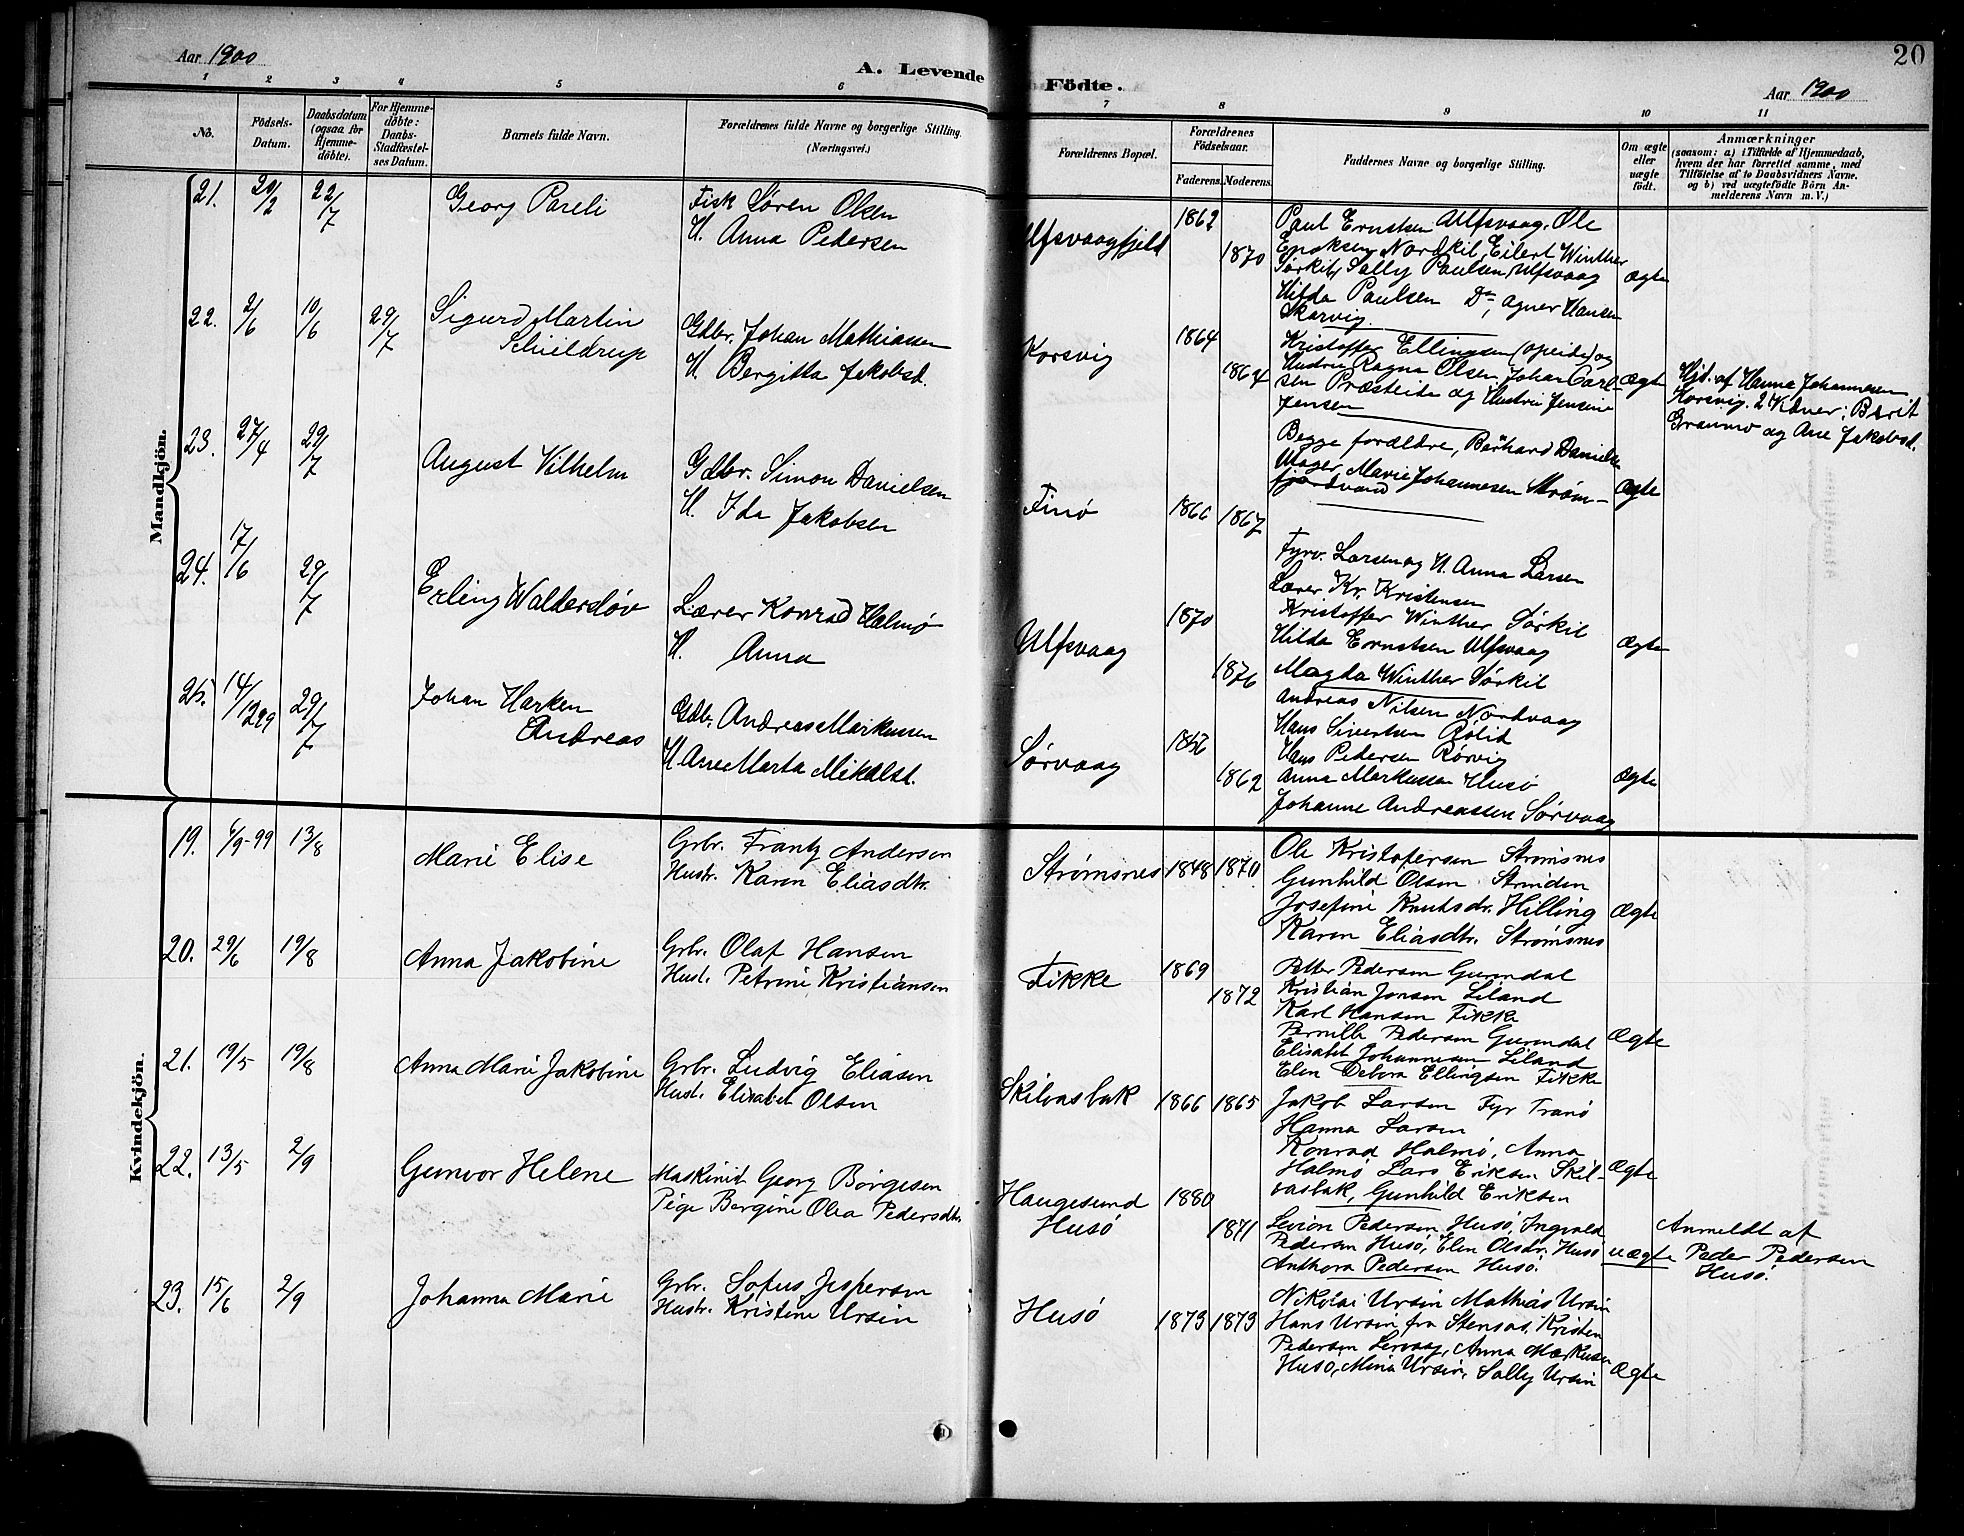 20
Aar 1900
A. Levende Födte.
Aar 1900
1 2 3 4 5 6 7 8 9 10 11
No.
Födsels-
Datum.
Daabsdatum
(ogsaa for
Hjemme-
döbte).
For Hjemme-
döbte:
Daabs-
Stadfæstel-
ses Datum.
Barnets fulde Navn.
Forældrenes fulde Navne og borgerlige Stilling.
(Næringsvei.)
Forældrenes Bopæl.
Forældrenes
Födselsaar.
Faderens. Moderens.
Faddernes Navne og borgerlige Stilling.
Om ægte
eller
uægte
født.
Anmærkninger
(saasom: a) i Tilfælde af Hjemmedaab,
hvem der har forrettet samme, med
Tilföielse af to Daabsvidners Navne.
og b) ved uægtefödte Börn An-
melderens Navn m. V.)
Mandkjön.
21. 20/2 22/7 Georg Pareli
Fisk Søren Olsen
H. Anna Pedersen
Ulfsvaagfjeld 1862 1870
Paul Ernstsen Ulfsvaag, Ole
Enoksen Nordkil, Eilert Winther
Sørkil, Sally Paulsen Ulfsvaag
Hilda Paulsen Do, Agner Hansen
Skarvig
Ægte
22. 2/6 10/6 29/7 Sigurd Martin
Schieldrup
Gdbr. Johan Mathiassen
H. Bergitta Jakobsd.
Korsvig 1864 1864
Kristoffer Ellingsen (opeide) og
Hustru Ragna Olsen, Johan Carl-
sen Præsteide og Hustru Jensine
Jensen
Ægte
Hjd. af Hanna Johannesen
Korsvig. 2 Vidner: Berit
Granmo og Ane Jakobsd.
23. 27/4 29/7 August Vilhelm
Gdbr. Simon Danielsen
H. Ida Jakobsen
Finø 1866 1867
Begge forældre, Bärhard Daniels
Moger, Marie Johannesen Strøm-
fjordvand
Ægte
24. 17/6 29/7 Erling Walderdöv
Lærer Konrad Halmø
H. Anna
Ulfsvaag 1870 1876
Fyrv. Larsen og H. Anna Larsen
Lærer Kr. Kristensen
Kristoffer Winther Sørkil
Hilda Ernstsen Ulfsvaag
Magda Winther Sørkil
Ægte
25. 14/12 99 29/7 Johan Harken
Andreas
Gdb. Andreas Markussen
H. Ane Marta Mikalsd.
Sørvaag 1862
Andreas Nilsen Nordvaag
Hans Sivertsen Rølid
Hans Pedersen Rørvig
Anna Markussen Husø
Johanne Andreassen Sørvaag
Ægte
Kvindekjön.
19. 6/9-99 13/8 Marie Elise
Grbr. Frantz Andersen
Hustr. Karen Eliasdtr.
Strømsnes 1848 1870
Ole Kristofersen Strømsnes
Gunhild Olsen Strinden
Josefine Knutsdr. Hilling
Karen Eliasdtr. Strømsnes
Ægte
20. 29/6 19/8 Anna Jakobine
Grbr. Olaf Hansen
Hust. Petrine Kristiansen
Fikke 1869 1872
Petter Pedersen Gurendal
Kristian Jonsen Liland
Karl Hansen Fikke
Pernille Pedersen Gurendal
Elisabet Johannesen Liland
Elen Debora Ellingsen Fikke
Ægte
21. 19/5 19/8 Anna Marie Jakobine
Grbr. Ludvig Eliasen
Hust. Elisabet Olsen
Skilvasbak 1866 1865
Jakob Larsen Fyr Tranø
Hanna Larsen
Konrad Halmø, Anna
Halmø Lars Eriksen Skil-
vasbak, Gunhild Eriksen
Ægte
22. 13/5 2/9 Gunvor Helene
Maskinist Georg Børgesen
Pige Bergine Olea Pedersdtr.
Haugesund
Husø 1880 1871
Levion Pedersen Husø, Ingvald
Pedersen Husø, Elen Olsdr. Husø
Anthora Pedersen Husø.
uægte
Anmeldt af
Peder Pedersen
Husø.
23. 15/6 2/9 Johanna Marie
Grbr. Sofus Jespersen
Hustr. Kristine Ursin
Husø 1873 1873
Nikolai Ursin Mathias Ursin
Hans Ursin fra Stensas, Kristen
Pedersen Lervaag, Anna Markusen
Husø, Mina Ursin, Sally Ursin
Ægte